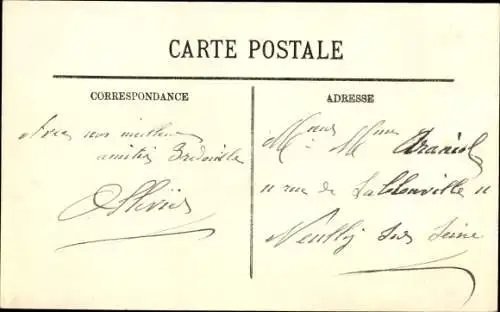 CARTE POSTALE
CORRESPONDANCE
Avec nos meilleures
amitiés
ADRESSE
Mr et Mme
11 rue de Sablonville 11
Neuilly sur Seine